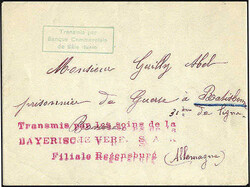 Transmis par
Banque Commerciale
de Bâle
Monsieur Guilly Abel
prisonnier de Guerre à Ratisbonne
31e de ligne
Transmis par les soins de la
BAYERISCHE VER
Filiale Regensburg
(Allemagne)